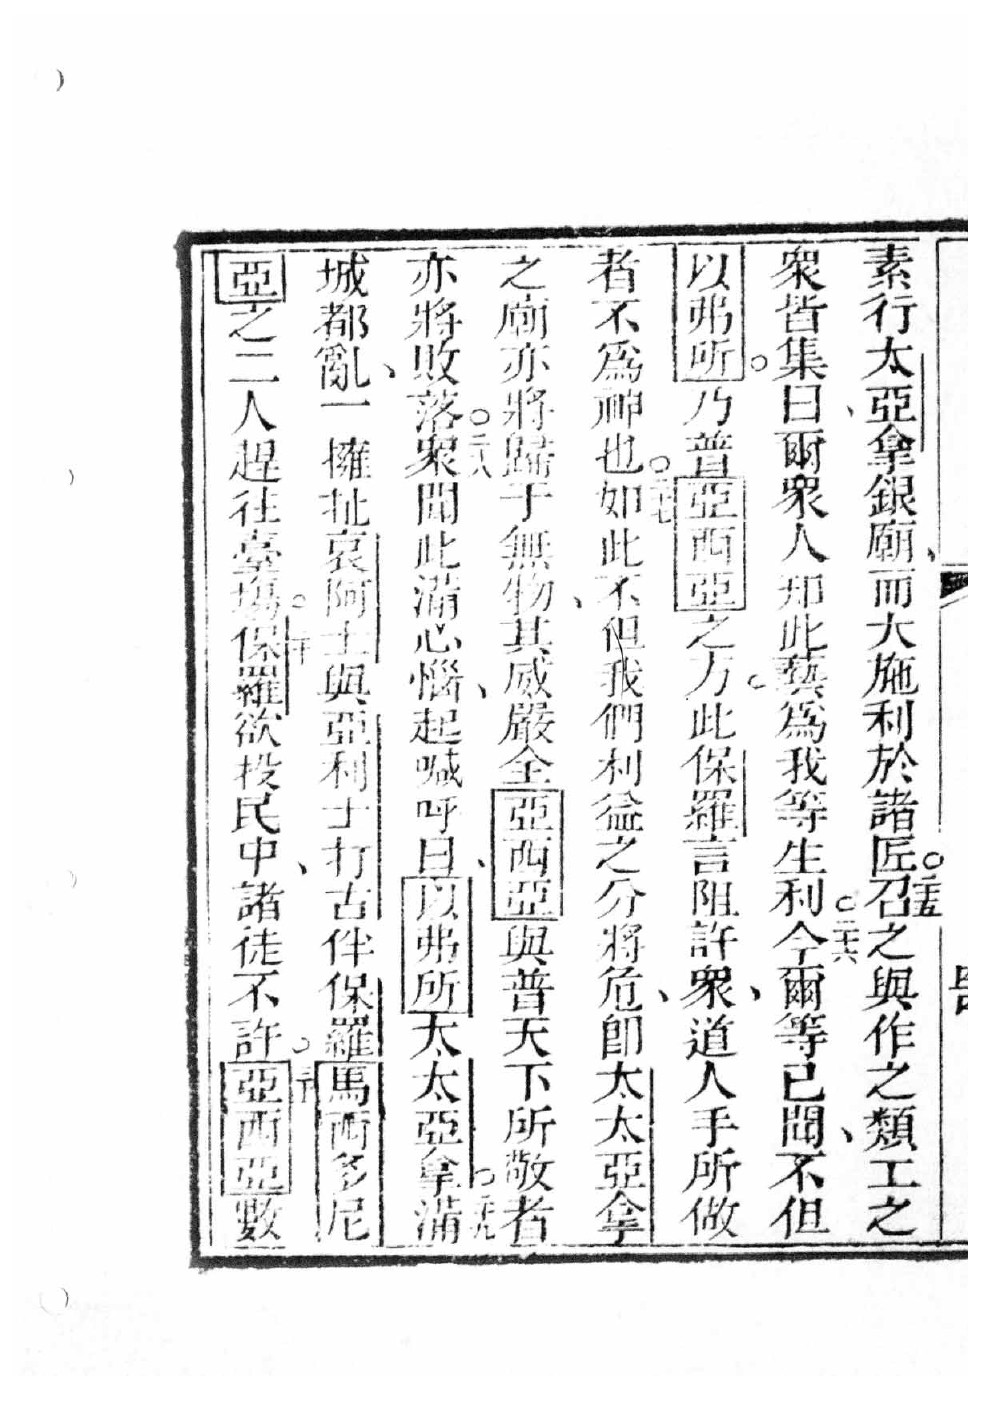 素行太亞拿銀廟、而大施利於諸匠。二十五召之與作之類工之
衆皆集、曰爾衆人却此藝爲我等生利。二十六今爾等已聞、不但
以弗所。乃普亞西亞之方。此保羅言阻許衆、道人手所做
者不爲神也。二十七如此不但我們利益之分將危、即太太亞拿
之廟亦將歸于無物、其威嚴全亞西亞與普天下所敬者
亦將敗落。二十八衆聞此滿心惱、起喊呼曰、以弗所太太亞拿。二十九滿
城都亂、一擁扯哀阿士與亞利士打古伴保羅馬西多尼
亞之二人趕往臺塲。三十保羅欲投民中、諸徒不許。三十一亞西亞數